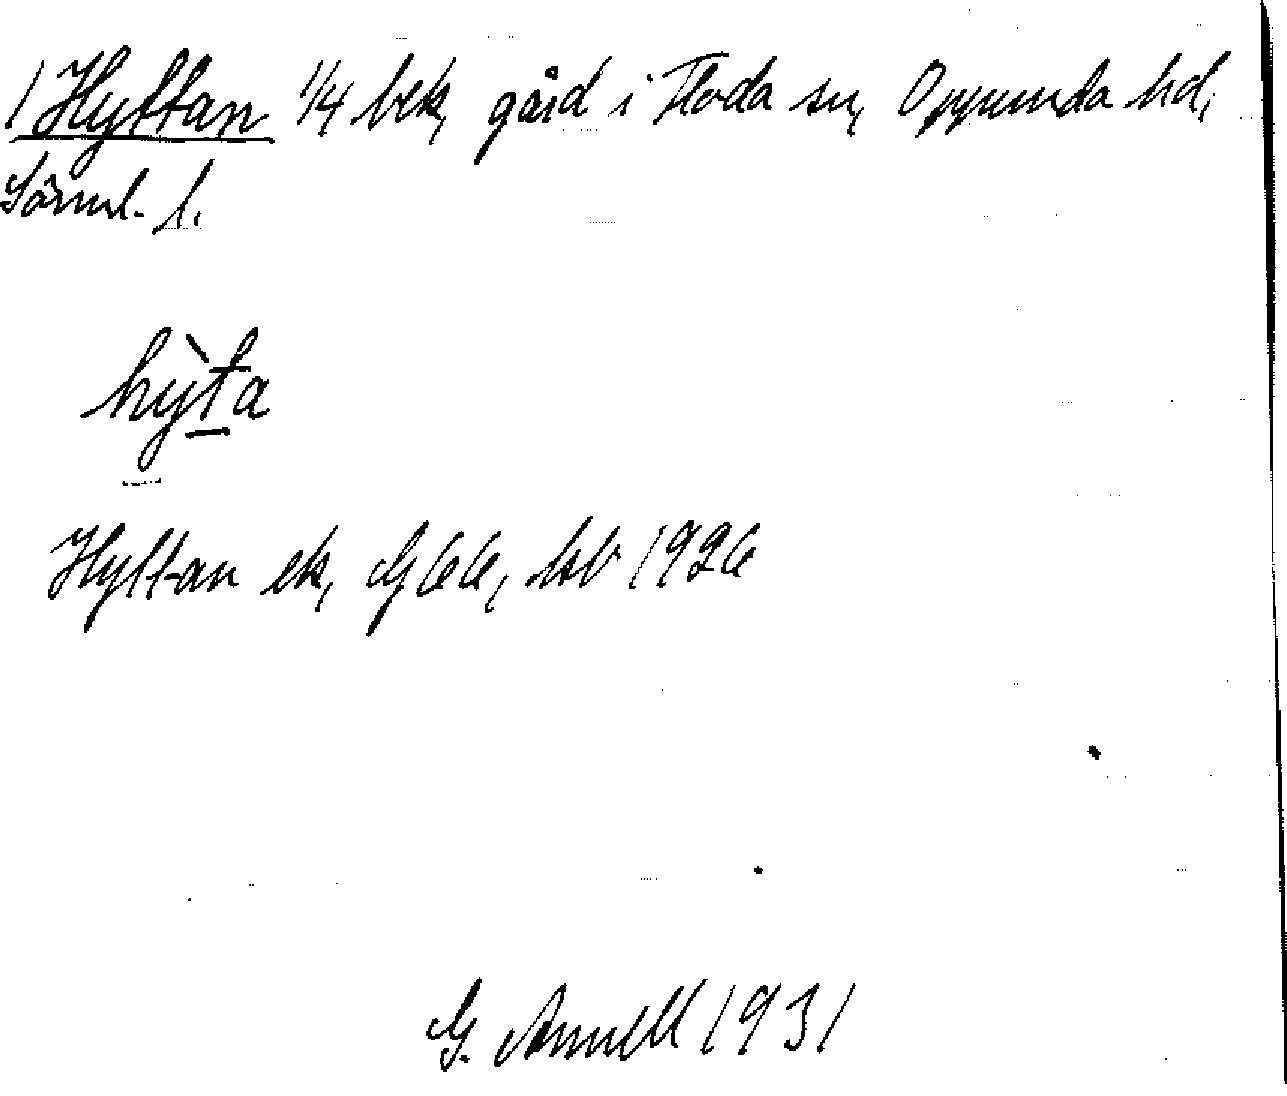 1 Hyttan 1/4 bek, gård i Floda sn, Oppunda hd,
Sörml. l.
hỳta
Hyttan ek, G 66, hb 1926
G. Annell 1931